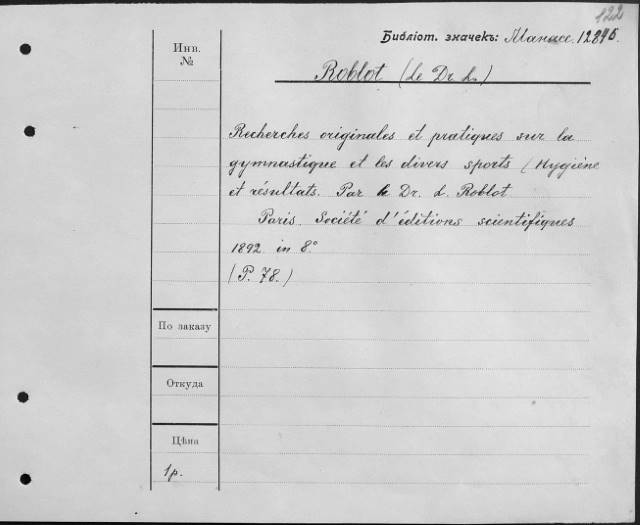 122
Библіот. значекъ: Манасс. 12896.
Инв.
№
Roblot (le Dr. L.)
Recherches originales et pratiques sur la
gymnastique et les divers sports (Hygiène
et résultats. Par le Dr. L. Roblot
Paris. Société d'éditions scientifiques
1892 in 8°
(P. 78.)
По заказу
Откуда
Цѣна
1р.